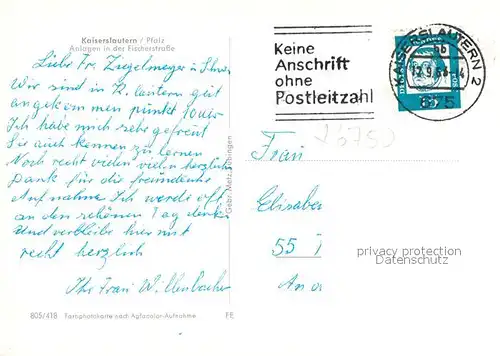 Kaiserslautern / Pfalz
Anlagen in der Fischerstraße
Liebe Fr. Ziegelmeyer u.
Wir sind in K. lautern gut
angekommen punkt 10 Uhr
Ich habe mich sehr gefreut
Sie auch kennen zu lernen
Noch recht vielen vielen herzlichen
Dank für die freundliche
Aufnahme. Ich werde oft
an den schönen Tag denken
Und verbleibe hier mit
recht herzlich
Ihr Frau Willenbacher
805/418 Farbphotokarte nach Agfacolor-Aufnahme FE
Gebr. Metz, Tübingen
Keine
Anschrift
ohne
Postleitzahl
KAISERSLAUTERN 2
bb
675
Frau
Elisabe
55 T
An d
privacy protection
Datenschutz